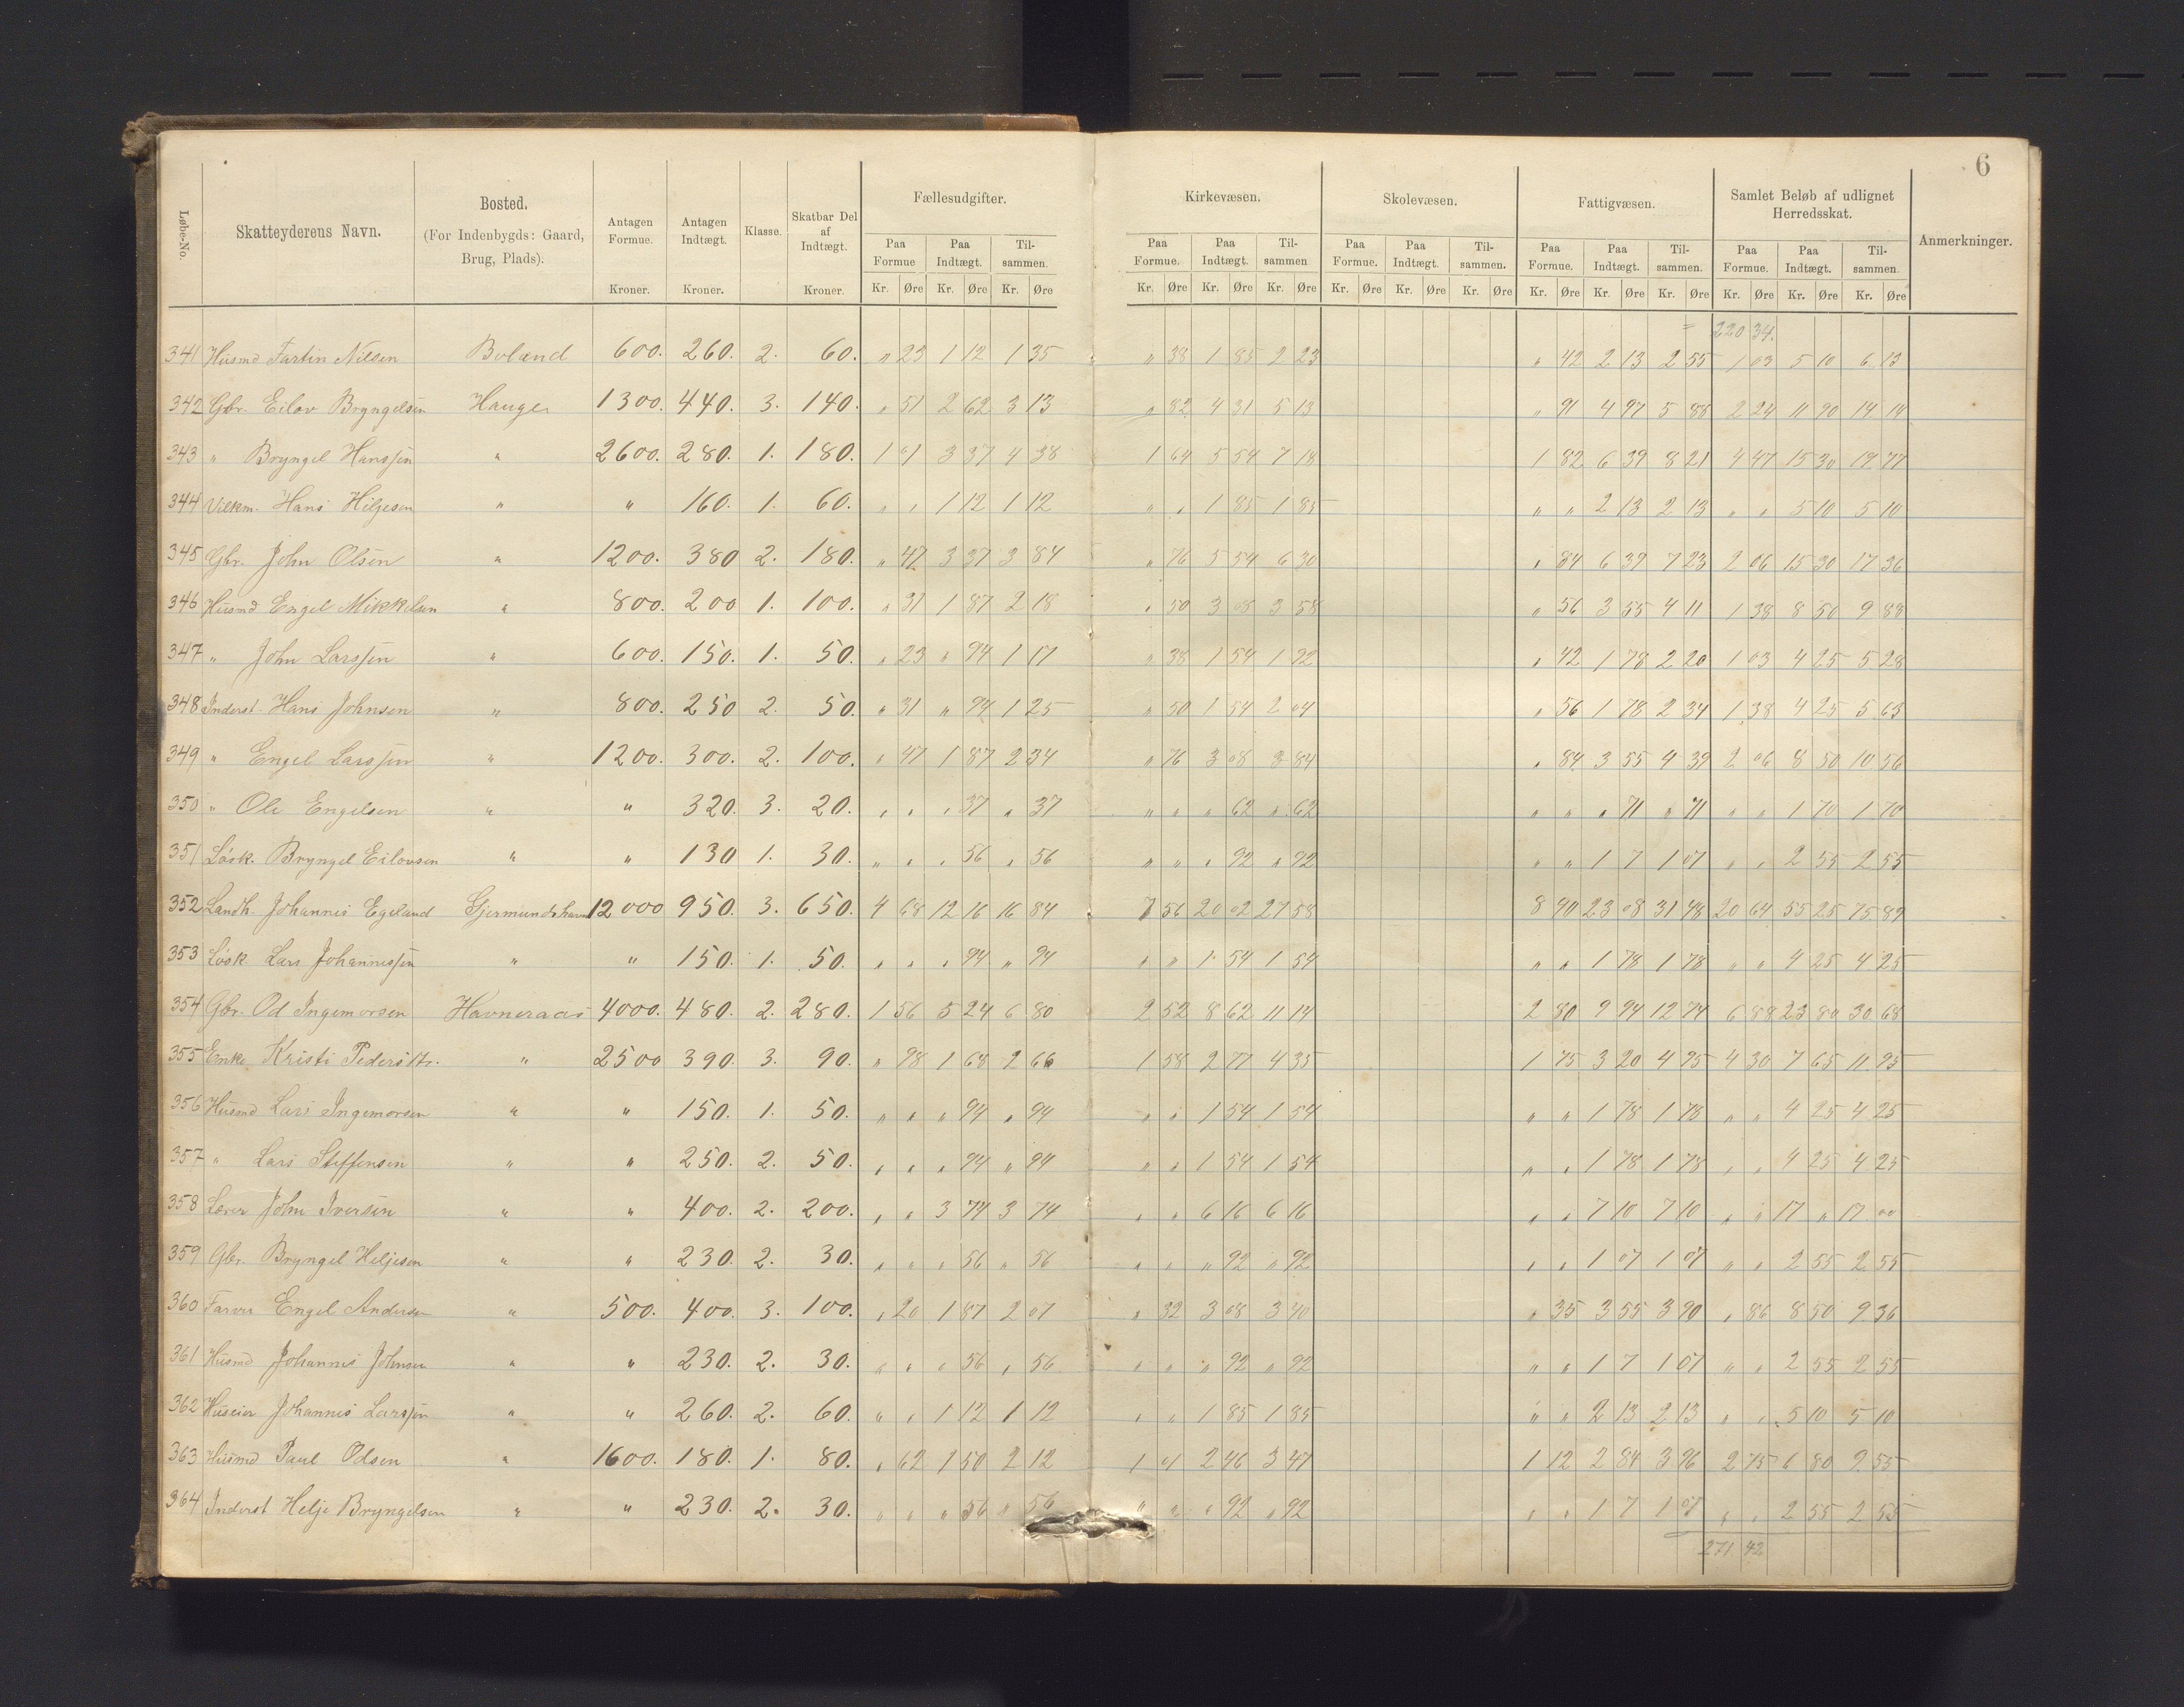 6
Løbe-No. Skatteyderens Navn. Bosted. (For Indenbygds: Gaard, Brug, Plads). Antagen Formue. Kroner. Antagen Indtægt. Kroner. Klasse. Skatbar Del af Indtægt. Kroner. Fællesudgifter. Kirkevæsen. Skolevæsen. Fattigvæsen. Samlet Beløb af udlignet Herredsskat. Anmerkninger.
Paa Formue Paa Indtægt. Til-sammen. Paa Formue. Paa Indtægt. Til-sammen Paa Formue. Paa Indtægt. Til-sammen. Paa Formue. Paa Indtægt. Til-sammen. Paa Formue. Paa Indtægt. Til-sammen.
Kr. Øre Kr. Øre Kr. Øre Kr. Øre Kr. Øre Kr. Øre Kr. Øre Kr. Øre Kr. Øre Kr. Øre Kr. Øre Kr. Øre Kr. Øre Kr. Øre Kr. Øre
220 34.
341 Husmd Tartin Nilsen Boland 600. 260. 2. 60. " 23 1 12 1 35 " 38 1 85 2 23 " 42 2 13 2 55 1 03 5 10 6 13
342 Gbr. Eilov Bryngelsen Hauge 1300. 440. 3. 140. " 51 2 62 3 13 " 82 4 31 5 13 " 91 4 97 5 88 2 24 11 90 14 14
343 " Bryngel Hanssen " 2600. 280. 1. 180. 1 01 3 37 4 38 1 64 5 54 7 18 1 82 6 39 8 21 4 47 15 30 19 77
344 Vilkm. Hans Hiljesen " " 160. 1. 60. " " 1 12 1 12 " " 1 85 1 85 " " 2 13 2 13 " " 5 10 5 10
345 Gbr. John Olsen " 1200. 380 2. 180. " 47 3 37 3 84 " 76 5 54 6 30 " 84 6 39 7 23 2 06 15 30 17 36
346 Husmd Engel Mikkelsen " 800. 200 1. 100. " 31 1 87 2 18 " 50 3 08 3 58 " 56 3 55 4 11 1 38 8 50 9 88
347 " John Larssen " 600. 150. 1. 50. " 23 " 94 1 17 " 38 1 54 1 92 " 42 1 78 2 20 1 03 4 25 5 28
348 Inderst. Hans Johnsen " 800. 250 2. 50. " 31 " 94 1 25 " 50 1 54 2 04 " 56 1 78 2 34 1 38 4 25 5 63
349 " Engel Larssen " 1200. 300. 2. 100. " 47 1 87 2 34 " 76 3 08 3 84 " 84 3 55 4 39 2 06 8 50 10 56
350 " Ole Engelsen " " 320. 3. 20. " " " 37 " 37 " " " 62 " 62 " " " 71 " 71 " " 1 70 1 70
351 Løsk. Bryngel Eilovsen " " 130 1. 30. " " " 56 " 56 " " " 92 " 92 " " 1 7 1 07 " " 2 55 2 55
352 Landh. Johannis Egeland Gjermundshavn 12000 950. 3. 650. 4 68 12 16 16 84 7 56 20 02 27 58 8 40 23 08 31 48 20 64 55 25 75 89
353 Løsk. Lars Johannessen " " 150. 1. 50. " " " 94 " 94 " " 1 54 1 54 " " 1 78 1 78 " " 4 25 4 25
354 Gbr. Od Ingemorsen Havneraas 4000. 480. 2. 280. 1 56 5 24 6 80 2 52 8 62 11 14 2 80 9 94 12 74 6 88 23 80 30 68
355 Enke Kristi Pedersdtr. " 2500 390. 3. 90. " 98 1 68 2 66 1 58 2 77 4 35 1 75 3 20 4 95 4 30 7 65 11 95
356 Husmd Lars Ingemorsen " " 150. 1. 50. " " " 94 " 94 " " 1 54 1 54 " " 1 78 1 78 " " 4 25 4 25
357 " Lars Steffensen " " 250. 2. 50. " " " 94 " 94 " " 1 54 1 54 " " 1 78 1 78 " " 4 25 4 25
358 Lærer John Iversen " " 400. 2. 200. " " 3 74 3 74 " " 6 16 6 16 " " 7 10 7 10 " " 17 " 17 00
359 Gbr. Bryngel Heljesen " " 230. 2. 30. " " " 56 " 56 " " " 92 " 92 " " 1 07 1 07 " " 2 55 2 55
360 Farver Engel Andersen " 500. 400. 3. 100. " 20 1 87 2 07 " 32 3 08 3 40 " 35 3 55 3 90 " 86 8 50 9 36
361 Husmd Johannis Johnsen " " 230. 2. 30. " " " 56 " 56 " " " 92 " 92 " " 1 7 1 07 " " 2 55 2 55
362 Huseier Johannis Larssen " " 260. 2. 60. " " 1 12 1 12 " " 1 85 1 85 " " 2 13 2 13 " " 5 10 5 10
363 Husmd Paul Odsen " 1600. 180. 1. 80. " 62 1 50 2 12 1 01 2 46 3 47 1 12 2 84 3 96 2 75 6 80 9 55
364 Inderst Helje Bryngelsen " " 230. 2. 30. " " " 56 " 56 " " " 92 " 92 " " 1 7 1 07 " " 2 55 2 55
271 42